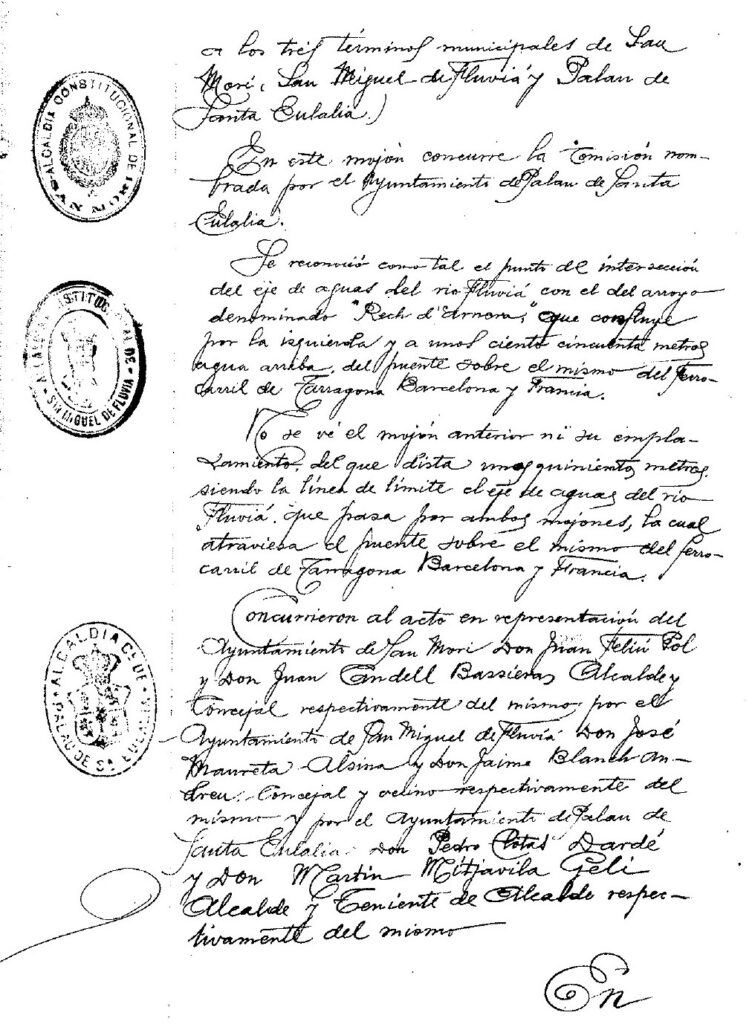 a los tres términos municipales de San
Mori, San Miguel de Fluviá y Palau de
Santa Eulalia.)
En este mojón concurre la Comisión nom-
brada por el Ayuntamiento de Palau de Santa
Eulalia.
Se reconoció como tal el punto de intersección
del eje de aguas del rio Fluviá con el del arroyo
denominado "Rech d'Arnora," que confluye
por la izquierda y a unos ciento cincuenta metros
agua arriba, del puente sobre el mismo del Ferro-
carril de Tarragona Barcelona y Francia.
No se vé el mojón anterior ni su empla-
zamiento, del que dista unos quinientos metros,
siendo la línea de límite el eje de aguas del rio
Fluviá, que pasa por ambos mojones, la cual
atraviesa el puente sobre el mismo del ferro-
carril de Tarragona Barcelona y Francia.
Concurrieron al acto en representación del
Ayuntamiento de San Mori Don Juan Feliú Pol
y Don Juan Candell Bassieras Alcalde y
Concejal respectivamente del mismo; por el
Ayuntamiento de San Miguel de Fluviá Don José
Maureta Alsina y Don Jaime Blanch An-
dreu, Concejal y vecino respectivamente del
mismo y por el Ayuntamiento de Palau de
Santa Eulalia Don Pedro Clotas Dardé
y Don Martin Mitjavila Geli
Alcalde y Teniente de Alcalde respec-
tivamente del mismo
En
ALCALDIA CONSTITUCIONAL DE
SAN MORI
ALCALDIA CONSTITUCIONAL DE
SAN MIGUEL DE FLUVIA
ALCALDIA C. DE
PALAU DE STA EULALIA